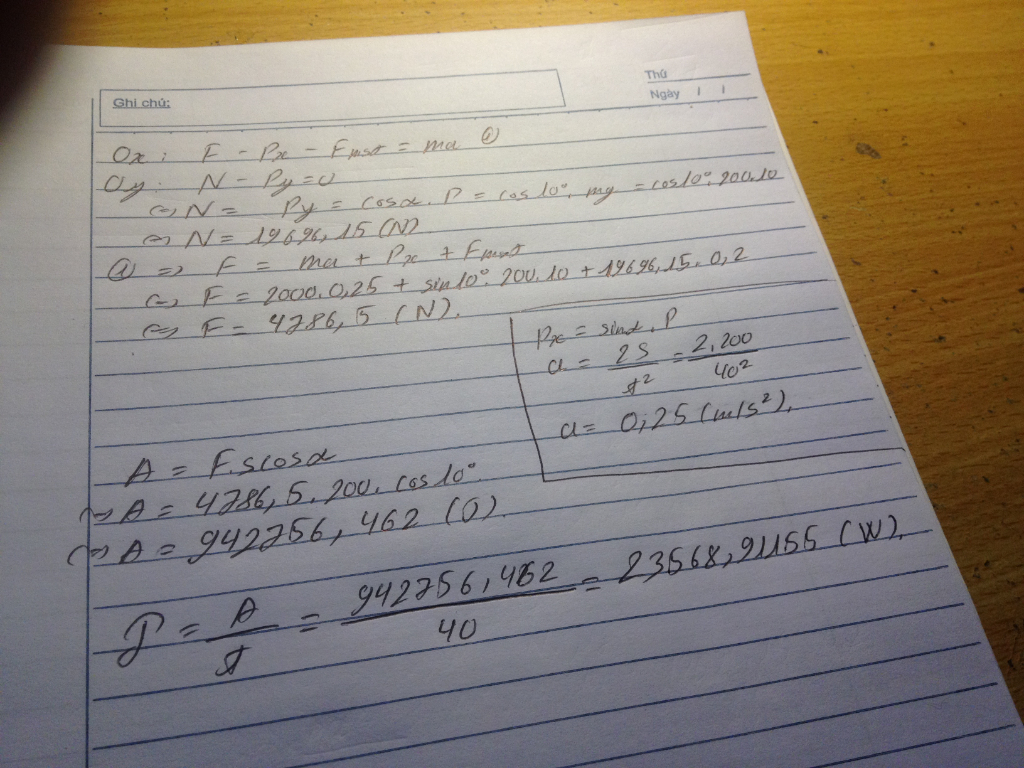 Ghi chú:
Thứ
Ngày / /
Ox: F - Px - Fmst = ma ①
Oy: N - Py = 0
<=> N = Py = cosα. P = cos10°. mg = cos10°. 200.10
<=> N = 19696,15 (N)
① => F = ma + Px + Fmst
<=> F = 2000.0,25 + sin10°. 200.10 + 19696,15.0,2
<=> F = 4786,5 (N).
Px = sinα. P
a = 2S/t² = 2.200/40²
a = 0,25 (m/s²).
A = F.scosα
<=> A = 4786,5. 200. cos10°.
<=> A = 942756,462 (J).
P = A/t = 942756,462/40 = 23568,91155 (W).